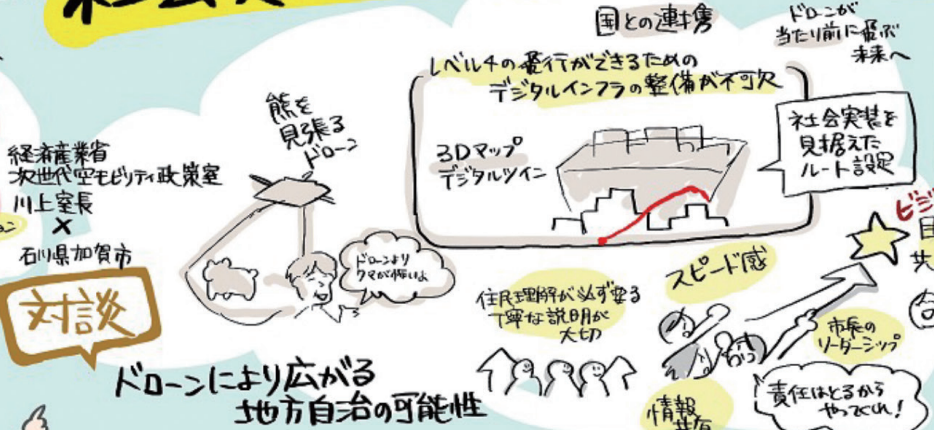 国との連携
ドローンが
当たり前に飛ぶ
未来へ
レベル4の飛行ができるための
デジタルインフラの整備が不可欠
3Dマップ
デジタルツイン
社会実装を
見据えた
ルート設定
熊を
見張る
ドローン
経済産業省
次世代空モビリティ政策室
川上室長
×
石川県加賀市
対談
ドローンより
クマが怖いよ
ドローンにより広がる
地方自治の可能性
住民理解が必ず要る
丁寧な説明が
大切
スピード感
市長の
リーダーシップ
責任はとるから
やってくれ!
情報
共有